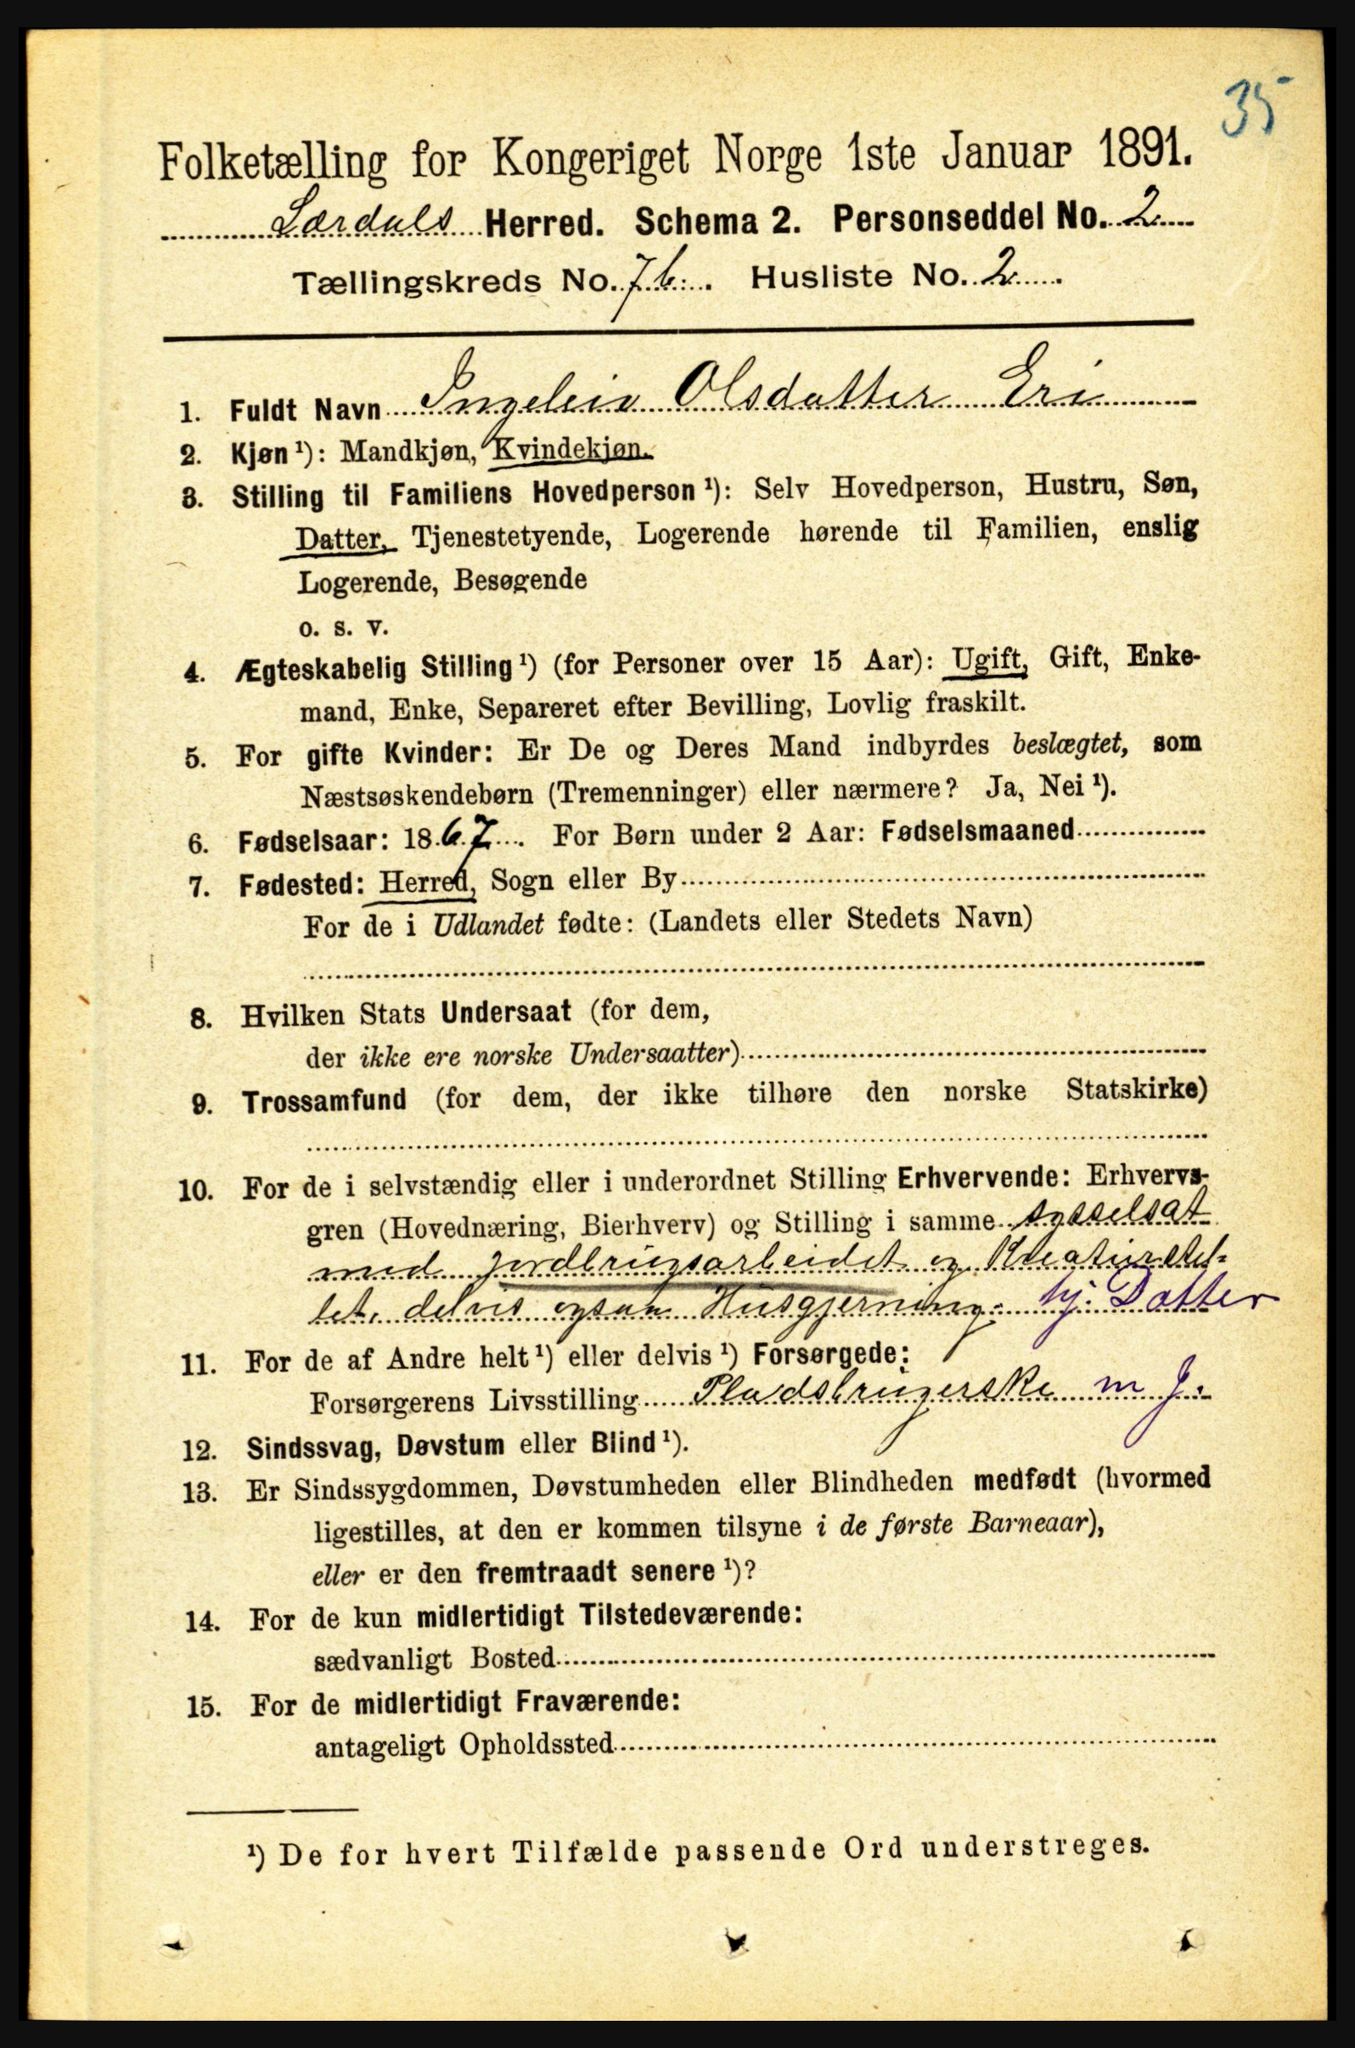 35
Folketælling for Kongeriget Norge 1ste Januar 1891.
Lærdals Herred. Schema 2. Personseddel No. 2
Tællingskreds No. 7b. Husliste No. 2.
1. Fuldt Navn Ingeleiv Olsdatter Eri
2. Kjøn¹): Mandkjøn, Kvindekjøn.
3. Stilling til Familiens Hovedperson¹): Selv Hovedperson, Hustru, Søn,
Datter, Tjenestetyende, Logerende hørende til Familien, enslig
Logerende, Besøgende
o. s. v.
4. Ægteskabelig Stilling¹) (for Personer over 15 Aar): Ugift, Gift, Enke-
mand, Enke, Separeret efter Bevilling, Lovlig fraskilt.
5. For gifte Kvinder: Er De og Deres Mand indbyrdes beslægtet, som
Næstsøskendebørn (Tremenninger) eller nærmere? Ja, Nei¹).
6. Fødselsaar: 1867. For Børn under 2 Aar: Fødselsmaaned
7. Fødested: Herred, Sogn eller By
For de i Udlandet fødte: (Landets eller Stedets Navn)
8. Hvilken Stats Undersaat (for dem,
der ikke ere norske Undersaatter)
9. Trossamfund (for dem, der ikke tilhøre den norske Statskirke)
10. For de i selvstændig eller i underordnet Stilling Erhvervende: Erhvervs-
gren (Hovednæring, Bierhverv) og Stilling i samme sysselsat
med jordbrugsarbeidet og Kreaturstel-
let, delvis ogsaa Husgjerning. tj. Datter
11. For de af Andre helt¹) eller delvis¹) Forsørgede:
Forsørgerens Livsstilling Pladsbrugerske m J.
12. Sindssvag, Døvstum eller Blind¹).
13. Er Sindssygdommen, Døvstumheden eller Blindheden medfødt (hvormed
ligestilles, at den er kommen tilsyne i de første Barneaar),
eller er den fremtraadt senere¹)?
14. For de kun midlertidigt Tilstedeværende:
sædvanligt Bosted
15. For de midlertidigt Fraværende:
antageligt Opholdssted
¹) De for hvert Tilfælde passende Ord understreges.